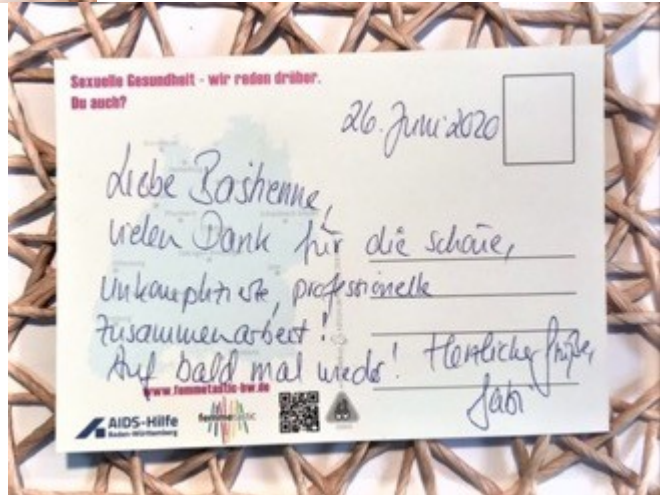 Sexuelle Gesundheit - wir reden drüber.
Du auch?
26. Juni 2020
Liebe Bashenne,
vielen Dank für die schöne,
unkomplizierte, professionelle
Zusammenarbeit!
Auf bald mal wieder! Herzliche Grüße,
Gabi
www.femmetastic-bw.de
AIDS-Hilfe
Baden-Württemberg
femmetastic